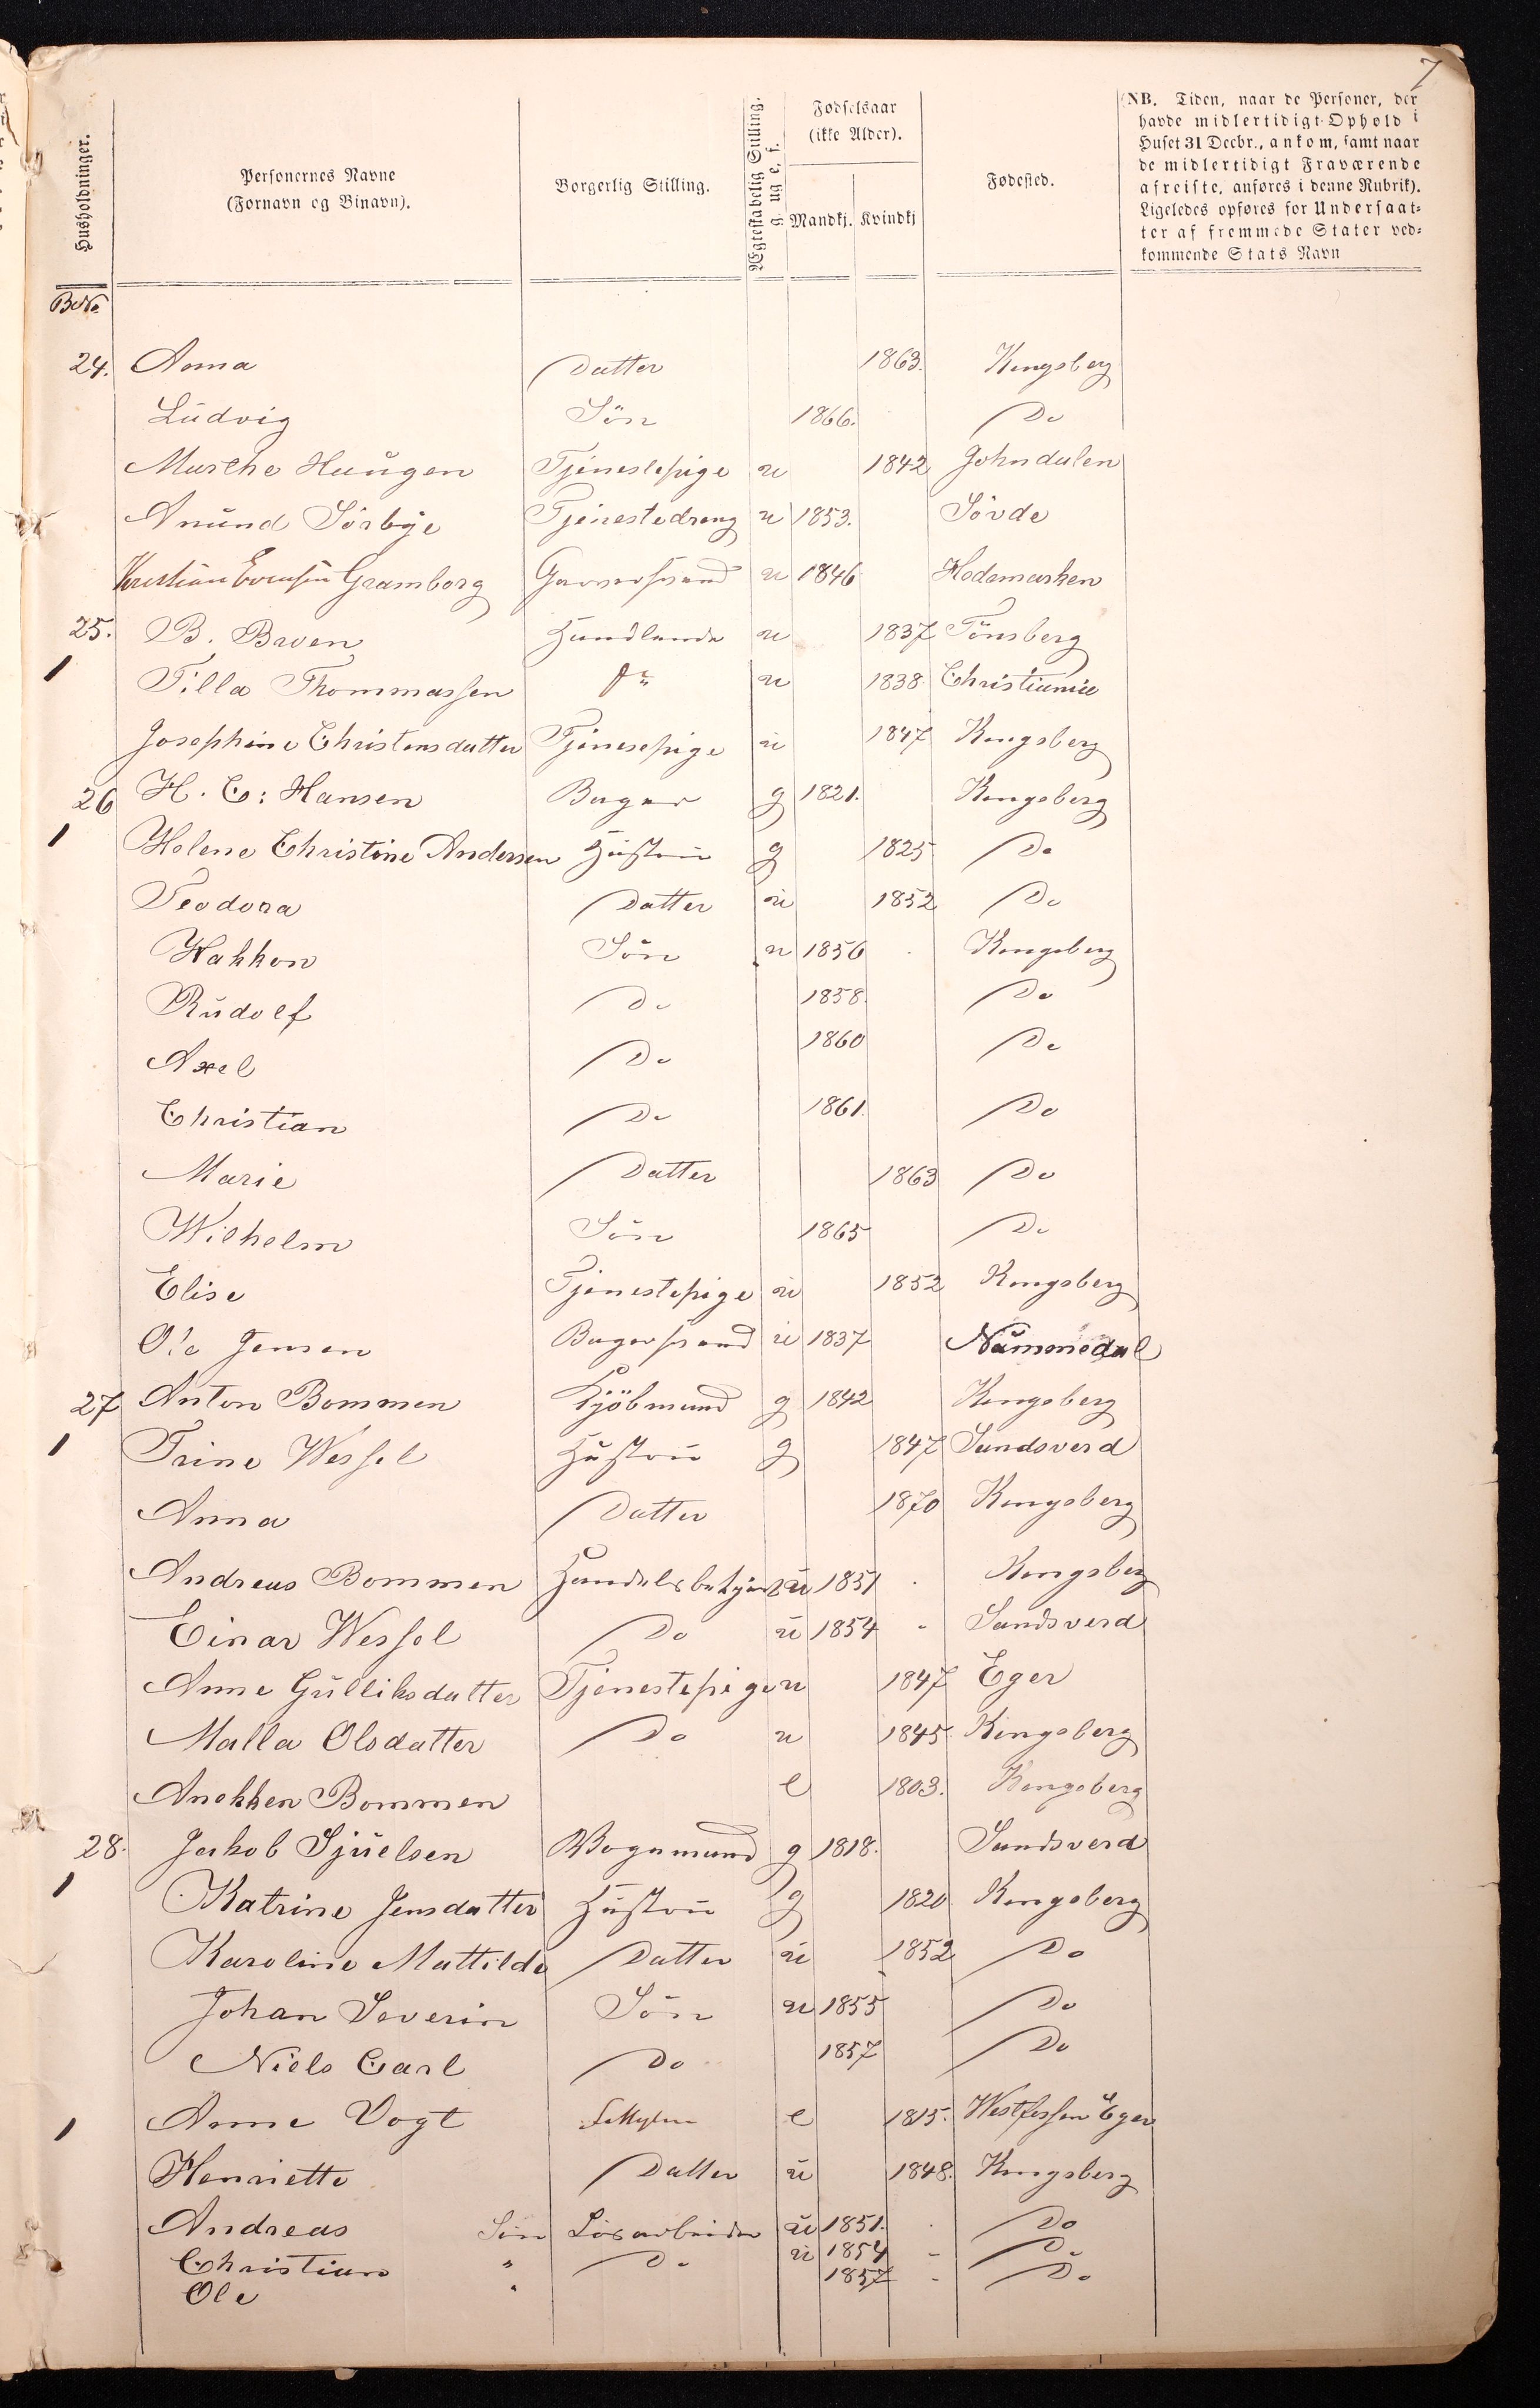 7
Husholdninger.
Personernes Navne
(Fornavn og Binavn).
Borgerlig Stilling.
Ægteskabelig Stilling.
g. ug e. f.
Fødselsaar
(ikke Alder).
Mandkj. Kvindkj
Fødested.
(NB. Tiden, naar de Personer, der
havde midlertidigt Ophold i
Huset 31 Decbr., ankom, samt naar
de midlertidigt Fraværende
afreiste, anføres i denne Rubrik).
Ligeledes opføres for Undersaat-
ter af fremmede Stater ved-
kommende Stats Navn
24. Anna Datter 1863. Kongsberg
Ludvig Sön 1866. Do
Marthe Haugen Tjenestepige u 1842 Johndalen
Anund Sörbye Tjenestedreng u 1853. Sövde
Kristian Evensen Gramborg Garversvend u 1846 Hedemarken
25. B. Bruen Handlende u 1837 Tönsberg
1 Tilla Thommassen do u 1838 Christiania
Josephine Christensdatter Tjenesepige u 1847 Kongsberg
26 H. C: Hansen Bager g 1821. Kongsberg
1 Helene Christine Andersen Hustru g 1825 Do
Teodora Datter u 1852 Do
Hakkon Sön u 1856 Kongsberg
Rudolf Do 1858. Do
Axel Do 1860 Do
Christian Do 1861. Do
Marie Datter 1863 Do
Wilhelm Sön 1865 Do
Elise Tjenestepige u 1852 Kongsberg
Ole Jensen Bagersvend u 1837 Nummedal
27 Anton Bommen Kjöbmand g 1842 Kongsberg
1 Trine Wessel Hustru g 1847 Sandsverd
Anna Datter 1870 Kongsberg
Andreas Bommen Handelsbetjent u 1851 Kongsberg
Einar Wessel Do u 1854 Sandsverd
Anne Gulliksdatter Tjenestepige u 1847 Eger
Malla Olsdatter Do u 1845 Kongsberg
Anekken Bommen e 1803. Kongsberg
28. Jakob Sjuelsen Vognmand g 1818. Sandsverd
1 Katrine Jensdatter Hustru g 1820 Kongsberg
Karoline Mattilde Datter u 1852 Do
Johan Severin Sön u 1855 Do
Niels Carl Do 1857 Do
1 Anne Vogt e 1815. Westfossen Eger
Henriette Datter u 1848. Kongsberg
Andreas Sön Lösarbeider u 1851. Do
Christian " Do u 1854 Do
Ole " 1857 Do